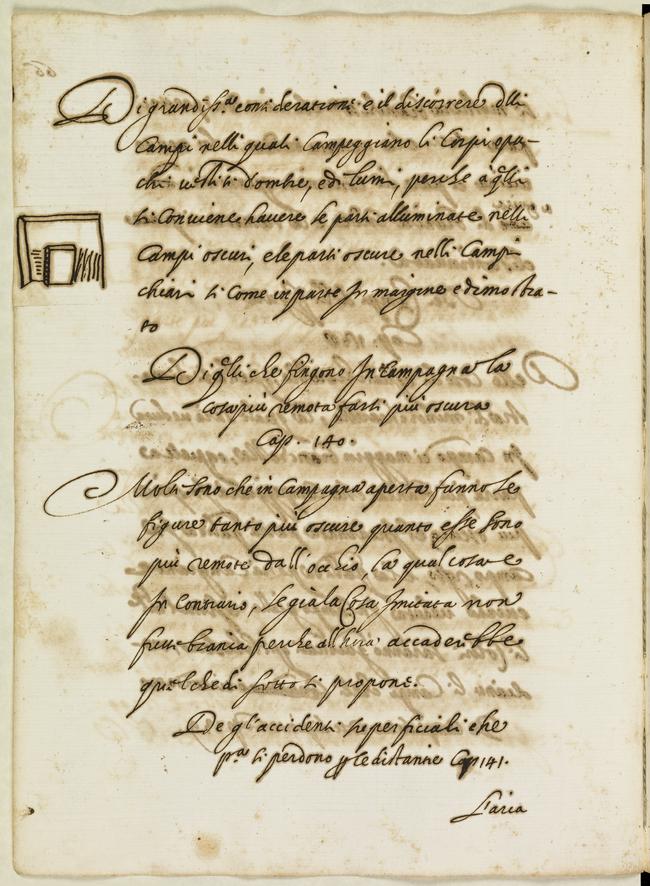 Di grandiss.ª consideratione è il discorrere dlli
Campi nelli quali Campeggiano li Corpi opa-
chi vestiti d'ombre, e di lumi, perche à qlli
si Conviene havere le parti alluminate nelli
Campi oscuri, e le parti oscure nelli Campi
chiari si Come in parte In margine e dimostra-
to
Di qlli che fingono In Campagna la
cosa più remota farsi più oscura
Cap. 140.
Molti sono che in Campagna aperta fanno le
figure tanto più oscure quanto esse sono
più remote dall'occhio, la qual cosa e
In Contrario, se gia la Cosa Imitata non
fusse bianca perche all'hora accaderebbe
quel che di sotto si propone.
De gl'accidenti superficiali che
p.ª si perdono p le distantie Cap 141.
L'aria